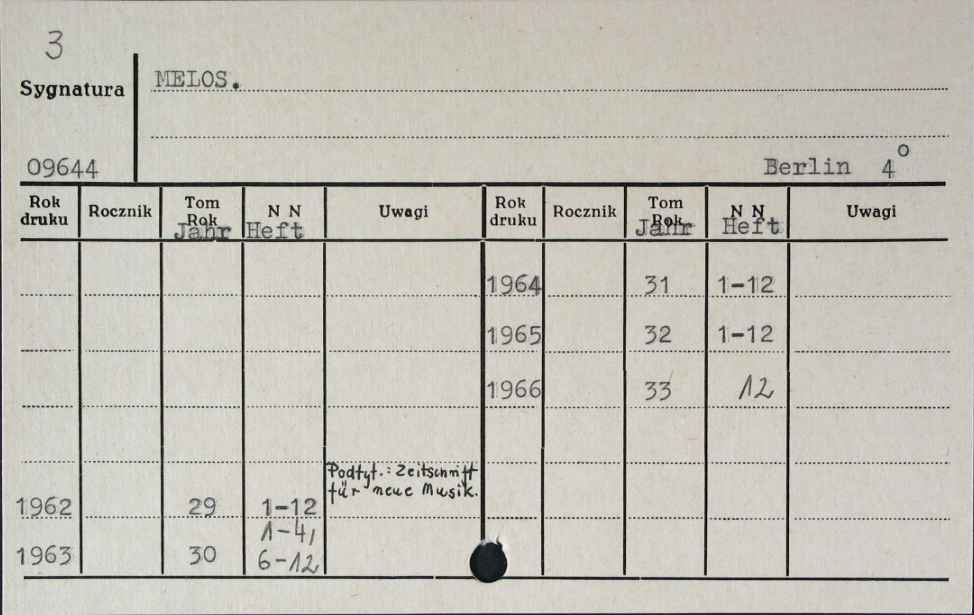 3
Sygnatura
MELOS.
09644
Berlin 4°
Rok druku Rocznik Tom Rok N N Uwagi Rok druku Rocznik Tom Rok N N Uwagi
Jahr Heft Jahr Heft
1964 31 1-12
1965 32 1-12
1966 33 12
Podtyt.: Zeitschrift
für neue Musik.
1962 29 1-12
1-4,
1963 30 6-12